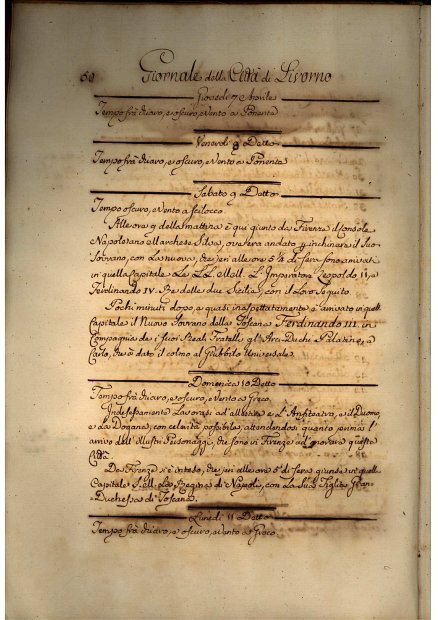 60 Giornale della Città di Livorno
Giovedì 7 Aprile
Tempo frà chiaro, e oscuro, e Vento a Ponente
Venerdì 8 Detto
Tempo frà chiaro, e oscuro, e Vento a Ponente
Sabato 9 Detto
Tempo oscuro, e Vento a Scilocco.
Alle ore 9 della mattina è qui giunto da Firenze il Console
Napoletano e Marchese Silva, ove era andato per inchinare il Suo
Sovrano, con La nuova, che jeri alle ore 5 1/4 di sera sono arrivati
in quella Capitale Le LL. MM. L'Imperatore Leopoldo II, e
Ferdinando IV. Re delle due Sicilie, con il Loro Seguito.
Pochi minuti dopo, e quasi inaspettatamente è arrivato in quella
Capitale il Nuovo Sovrano della Toscana Ferdinando III. in
Compagnia de i suoi Reali Fratelli gl'Arci-Duchi Palatino, e
Carlo, che à dato il colmo al Giubbilo Universale.
Domenica 10 Detto
Tempo frà chiaro, e oscuro, e Vento a Greco.
Indefessamente Lavorasi ad'allestire e L'Anfiteatro, e il Duomo,
e La Dogana, con celerità possibile, attendendosi quanto prima l'
arrivo dell'Illustri Personaggi, che sono in Firenze ad'onorare questa
Città.
Da Firenze si è inteso, che jeri alle ore 5 di sera giunse in quella
Capitale S. M. La Regina di Napoli, con La Sua Figlia Gran-
Duchessa di Toscana.
Lunedì 11 Detto
Tempo frà chiaro, e oscuro, e Vento a Greco.